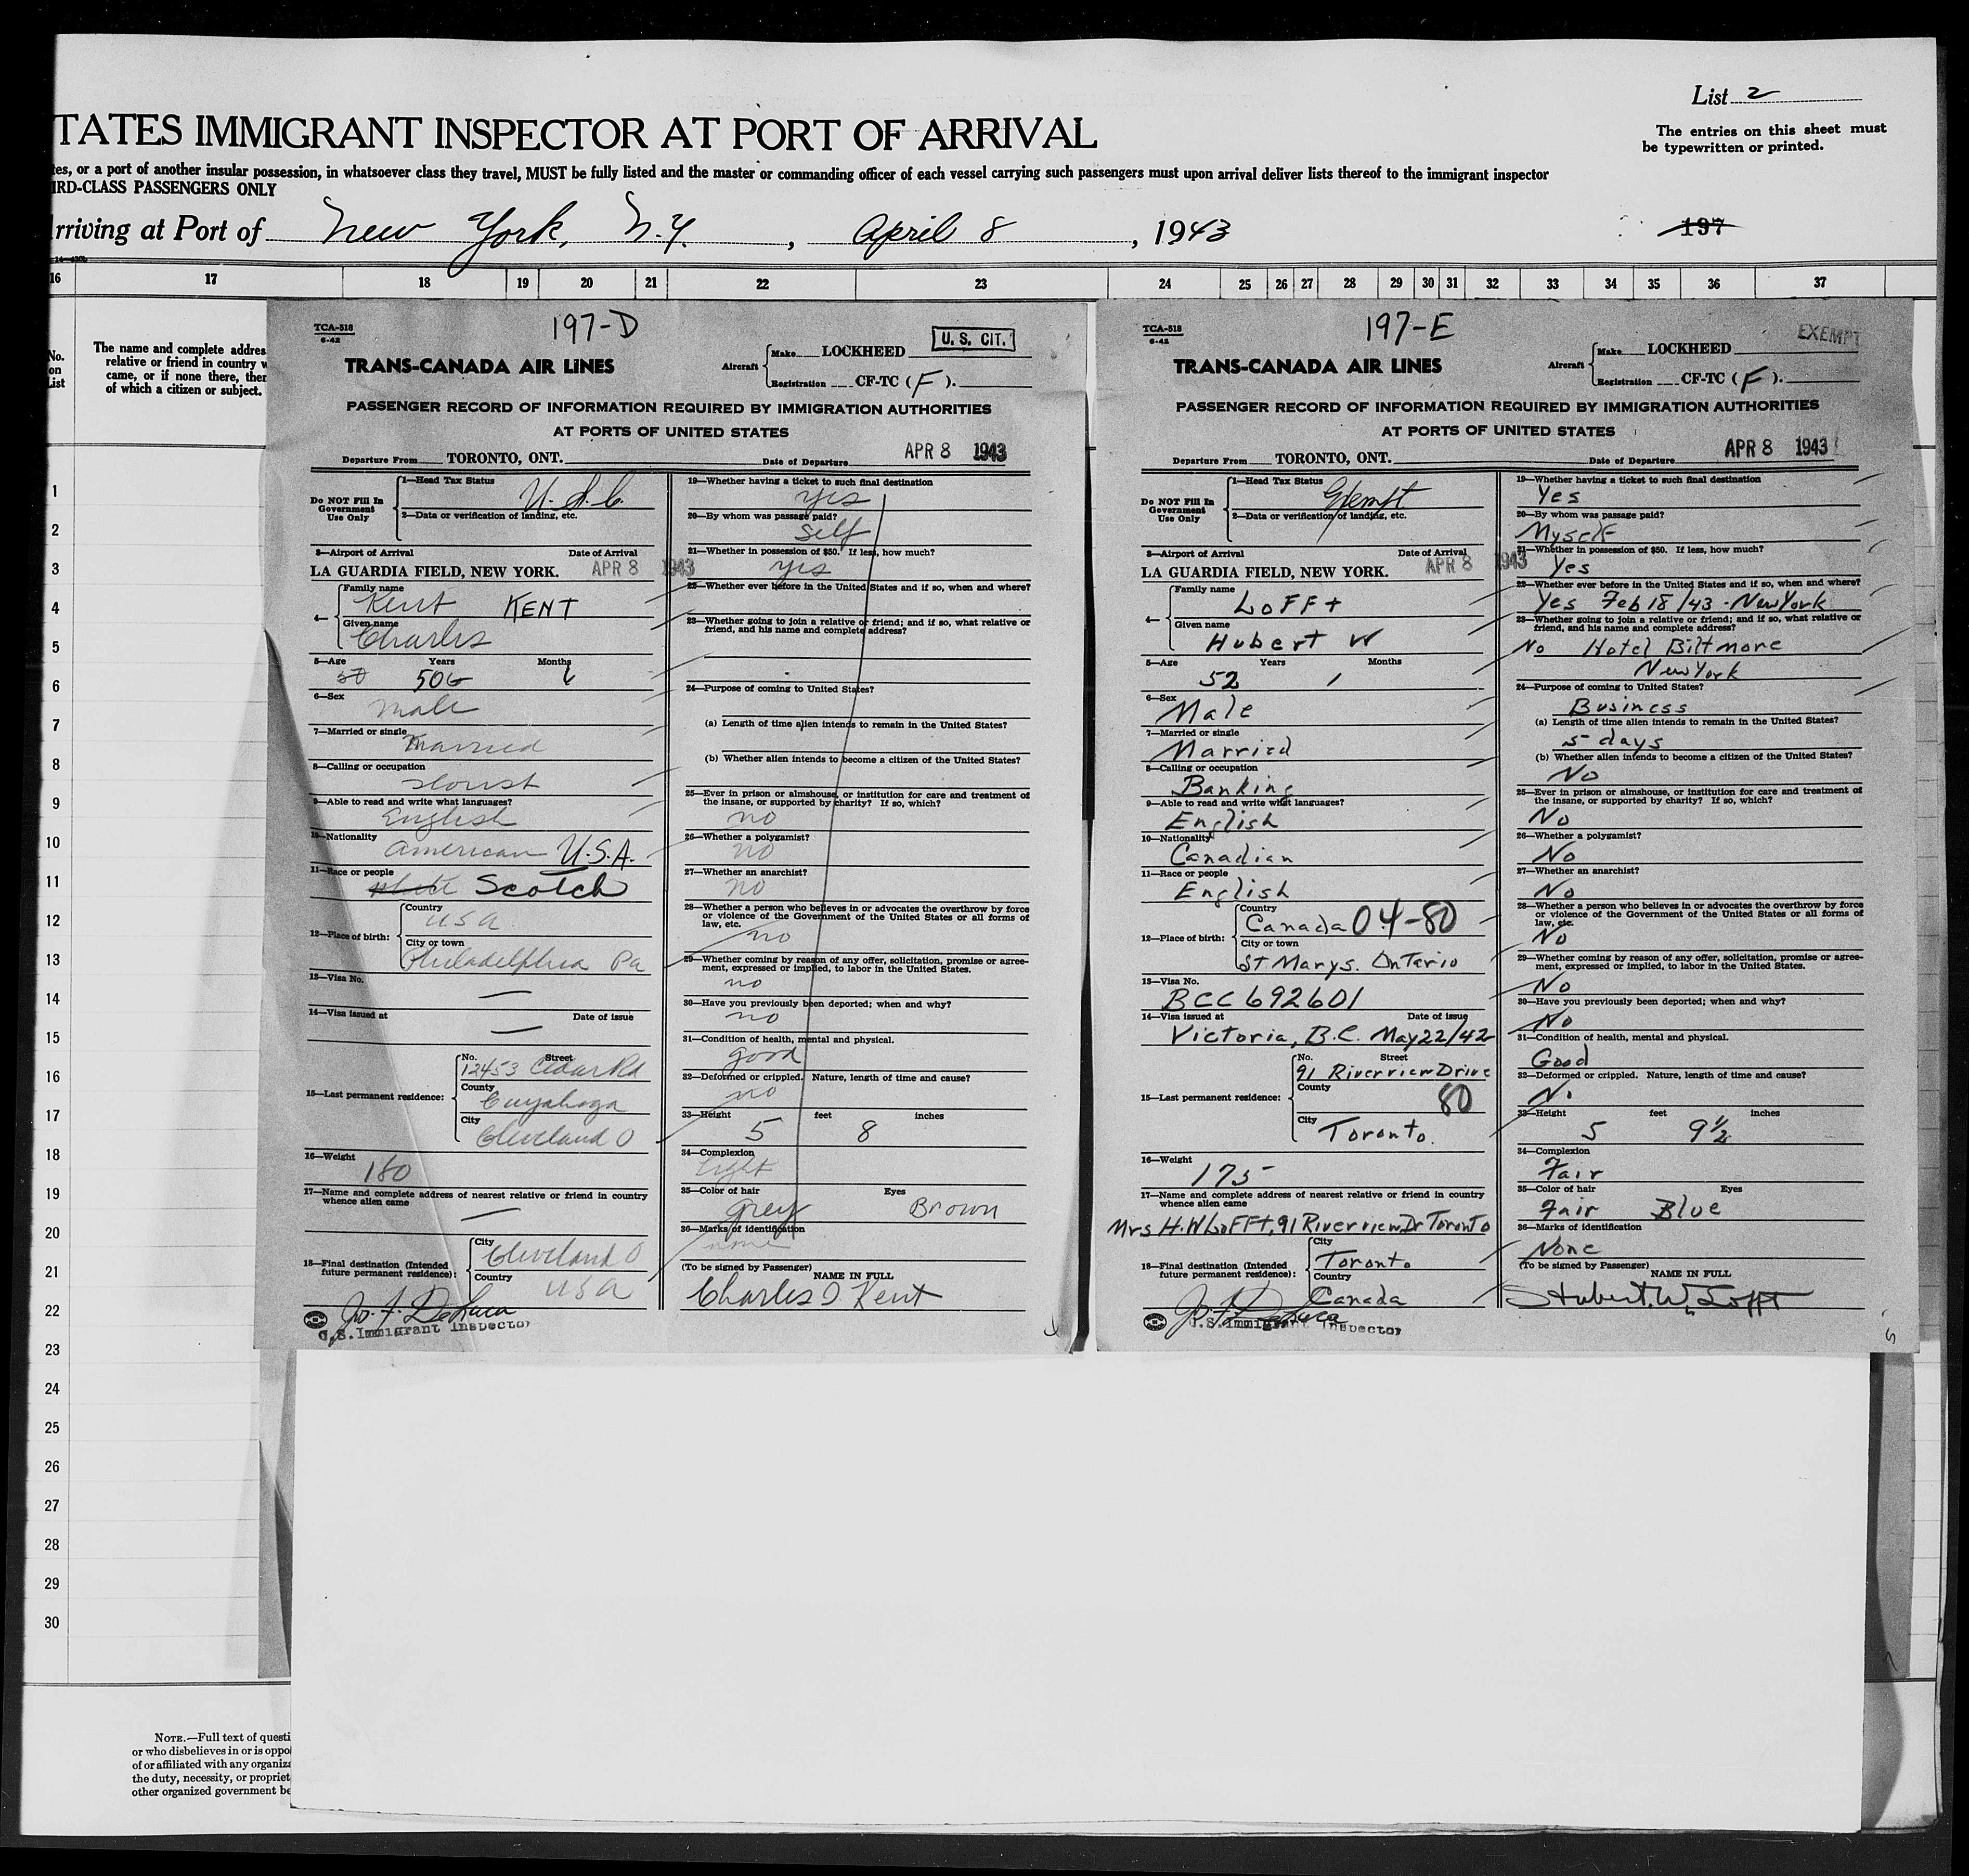 List 2
The entries on this sheet must
be typewritten or printed.
TATES IMMIGRANT INSPECTOR AT PORT OF ARRIVAL
tes, or a port of another insular possession, in whatsoever class they travel, MUST be fully listed and the master or commanding officer of each vessel carrying such passengers must upon arrival deliver lists thereof to the immigrant inspector
IRD-CLASS PASSENGERS ONLY
rriving at Port of New York, N.Y. , April 8 , 1943
197
16 17 18 19 20 21 22 23 24 25 26 27 28 29 30 31 32 33 34 35 36 37
No.
on
List
The name and complete addres
relative or friend in country w
came, or if none there, ther
of which a citizen or subject.
1
2
3
4
5
6
7
8
9
10
11
12
13
14
15
16
17
18
19
20
21
22
23
24
25
26
27
28
29
30
NOTE.—Full text of questi
or who disbelieves in or is oppo
of or affiliated with any organiza
the duty, necessity, or propriet
other organized government be
TCA-518
6-42
197-D
U. S. CIT.
TRANS-CANADA AIR LINES
Aircraft
Make LOCKHEED
Registration CF-TC (F).
PASSENGER RECORD OF INFORMATION REQUIRED BY IMMIGRATION AUTHORITIES
AT PORTS OF UNITED STATES
Departure From TORONTO, ONT. Date of Departure APR 8 1943
Do NOT Fill In
Government
Use Only
1—Head Tax Status
U.S.C.
2—Data or verification of landing, etc.
3—Airport of Arrival Date of Arrival
LA GUARDIA FIELD, NEW YORK. APR 8 1943
4—
Family name
Kent KENT
Given name
Charles
5—Age Years Months
50
6—Sex
male
7—Married or single
Married
8—Calling or occupation
9—Able to read and write what languages?
English
10—Nationality
American U.S.A.
11—Race or people
white Scotch
12—Place of birth:
Country
USA
City or town
Philadelphia Pa
13—Visa No.
—
14—Visa issued at Date of issue
—
15—Last permanent residence:
No. Street
12453 Cedar Rd
County
Cuyahoga
City
Cleveland O
16—Weight
180
17—Name and complete address of nearest relative or friend in country
whence alien came
—
18—Final destination (Intended
future permanent residence):
City
Cleveland O
Country
USA
Jo. F. DeLuca
U.S. Immigrant Inspector
19—Whether having a ticket to such final destination
yes
20—By whom was passage paid?
Self
21—Whether in possession of $50. If less, how much?
yes
22—Whether ever before in the United States and if so, when and where?
23—Whether going to join a relative or friend; and if so, what relative or
friend, and his name and complete address?
24—Purpose of coming to United States?
(a) Length of time alien intends to remain in the United States?
(b) Whether alien intends to become a citizen of the United States?
25—Ever in prison or almshouse, or institution for care and treatment of
the insane, or supported by charity? If so, which?
no
26—Whether a polygamist?
no
27—Whether an anarchist?
no
28—Whether a person who believes in or advocates the overthrow by force
or violence of the Government of the United States or all forms of
law, etc.
no
29—Whether coming by reason of any offer, solicitation, promise or agree-
ment, expressed or implied, to labor in the United States.
no
30—Have you previously been deported; when and why?
no
31—Condition of health, mental and physical.
good
32—Deformed or crippled. Nature, length of time and cause?
no
33—Height feet inches
5 8
34—Complexion
light
35—Color of hair Eyes
Grey Brown
36—Marks of identification
none
(To be signed by Passenger)
NAME IN FULL
Charles I Kent
TCA-518
6-42
197-E
EXEMPT
TRANS-CANADA AIR LINES
Aircraft
Make LOCKHEED
Registration CF-TC (F).
PASSENGER RECORD OF INFORMATION REQUIRED BY IMMIGRATION AUTHORITIES
AT PORTS OF UNITED STATES
Departure From TORONTO, ONT. Date of Departure APR 8 1943
Do NOT Fill In
Government
Use Only
1—Head Tax Status
Exempt
2—Data or verification of landing, etc.
3—Airport of Arrival Date of Arrival
LA GUARDIA FIELD, NEW YORK. APR 8 1943
4—
Family name
LoFFt
Given name
Hubert W
5—Age Years Months
52 1
6—Sex
Male
7—Married or single
Married
8—Calling or occupation
Banking
9—Able to read and write what languages?
English
10—Nationality
Canadian
11—Race or people
English
12—Place of birth:
Country
Canada 04-80
City or town
St Marys. Ontario
13—Visa No.
BCC 692601
14—Visa issued at Date of issue
Victoria, B.C. May 22/42
15—Last permanent residence:
No. Street
91 Riverview Drive
County
80
City
Toronto.
16—Weight
175
17—Name and complete address of nearest relative or friend in country
whence alien came
Mrs H.W LoFFt, 91 Riverview Dr Toronto
18—Final destination (Intended
future permanent residence):
City
Toronto
Country
Canada
Jo. F. DeLuca
U.S. Immigrant Inspector
19—Whether having a ticket to such final destination
Yes
20—By whom was passage paid?
Myself
21—Whether in possession of $50. If less, how much?
Yes
22—Whether ever before in the United States and if so, when and where?
Yes Feb 18/43 - New York
23—Whether going to join a relative or friend; and if so, what relative or
friend, and his name and complete address?
No Hotel Biltmore
New York
24—Purpose of coming to United States?
Business
(a) Length of time alien intends to remain in the United States?
5 days
(b) Whether alien intends to become a citizen of the United States?
No
25—Ever in prison or almshouse, or institution for care and treatment of
the insane, or supported by charity? If so, which?
No
26—Whether a polygamist?
No
27—Whether an anarchist?
No
28—Whether a person who believes in or advocates the overthrow by force
or violence of the Government of the United States or all forms of
law, etc.
No
29—Whether coming by reason of any offer, solicitation, promise or agree-
ment, expressed or implied, to labor in the United States.
No
30—Have you previously been deported; when and why?
No
31—Condition of health, mental and physical.
Good
32—Deformed or crippled. Nature, length of time and cause?
No
33—Height feet inches
5 9½
34—Complexion
Fair
35—Color of hair Eyes
Fair Blue
36—Marks of identification
None
(To be signed by Passenger)
NAME IN FULL
Hubert. W. Lofft